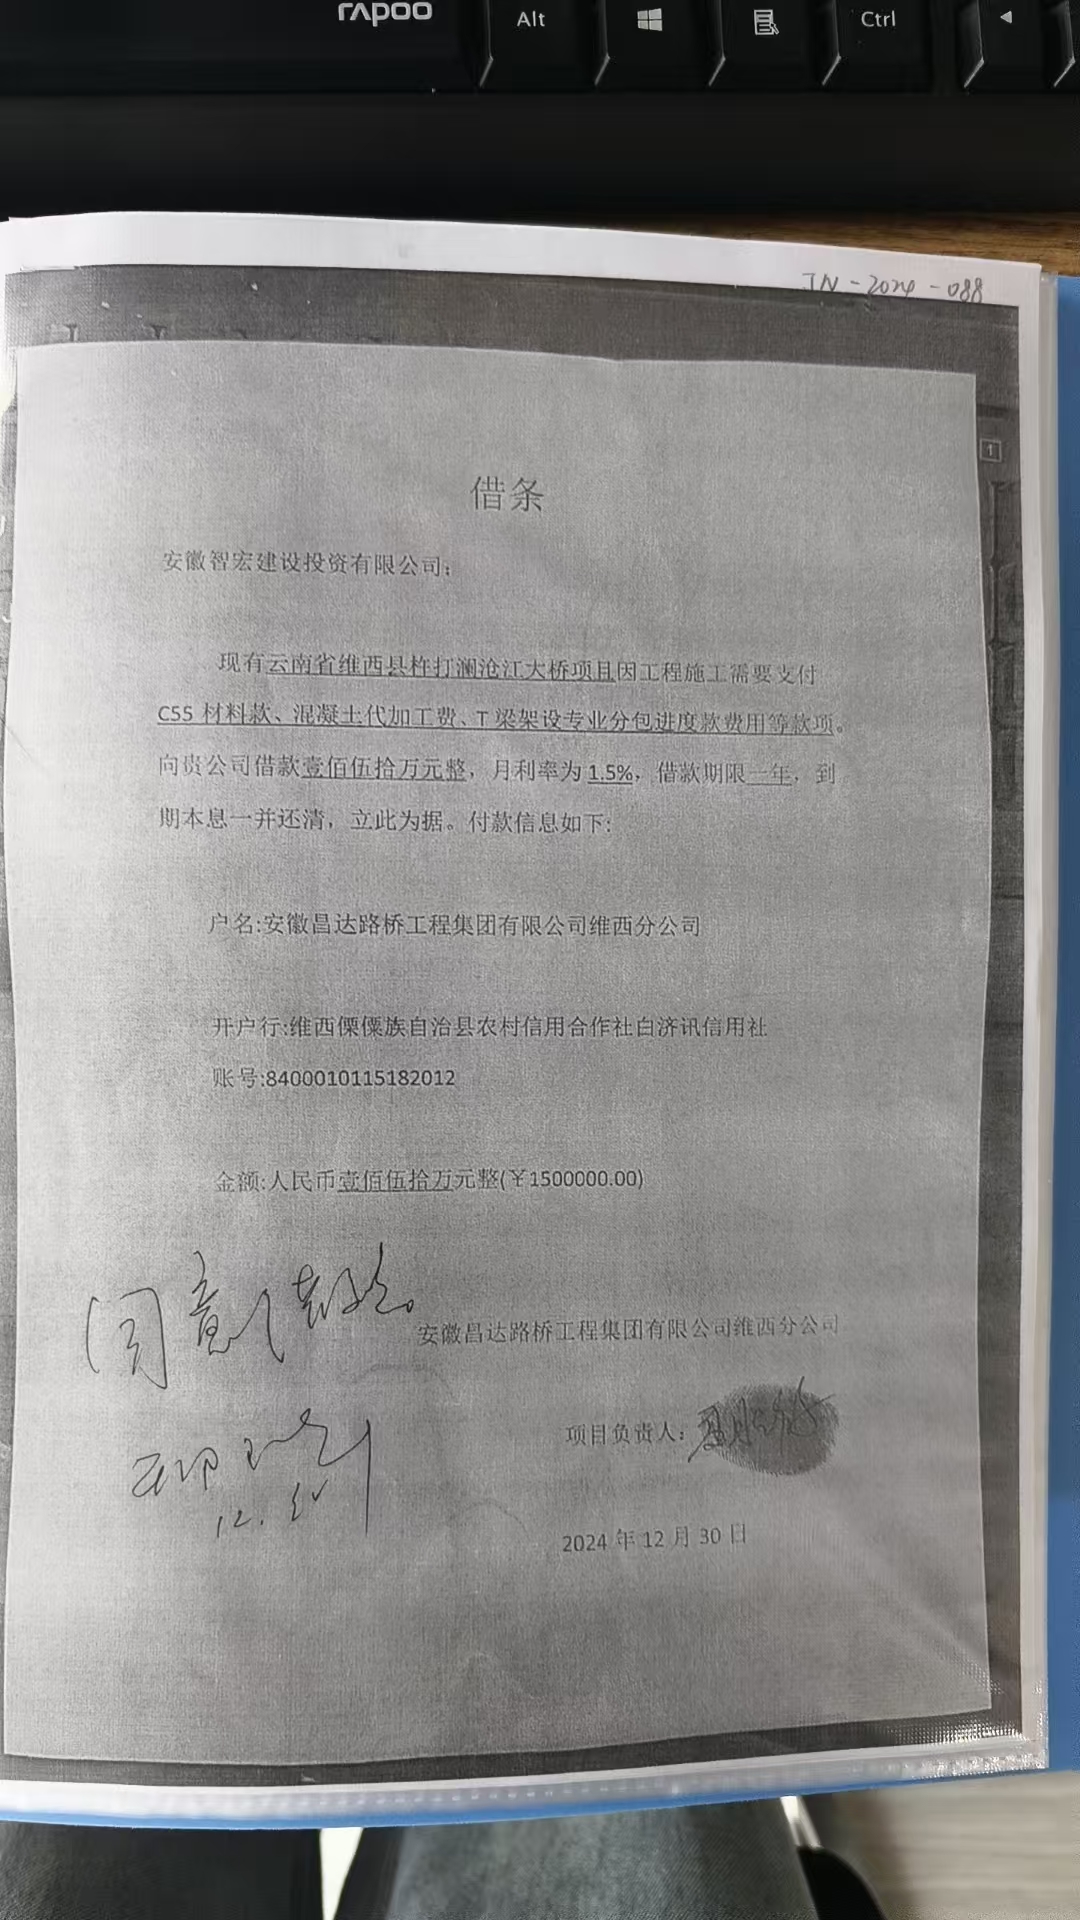 rapoo
Alt
Ctrl
JN-2024-088
借条
安徽智宏建设投资有限公司：
现有云南省维西县杵打澜沧江大桥项目因工程施工需要支付
C55 材料款、混凝土代加工费、T 梁架设专业分包进度款费用等款项。
向贵公司借款壹佰伍拾万元整，月利率为 1.5%，借款期限一年，到
期本息一并还清，立此为据。付款信息如下:
户名:安徽昌达路桥工程集团有限公司维西分公司
开户行:维西傈僳族自治县农村信用合作社白济讯信用社
账号:8400010115182012
金额:人民币壹佰伍拾万元整(￥1500000.00)
同意
安徽昌达路桥工程集团有限公司维西分公司
项目负责人：
12.
2024 年 12 月 30 日